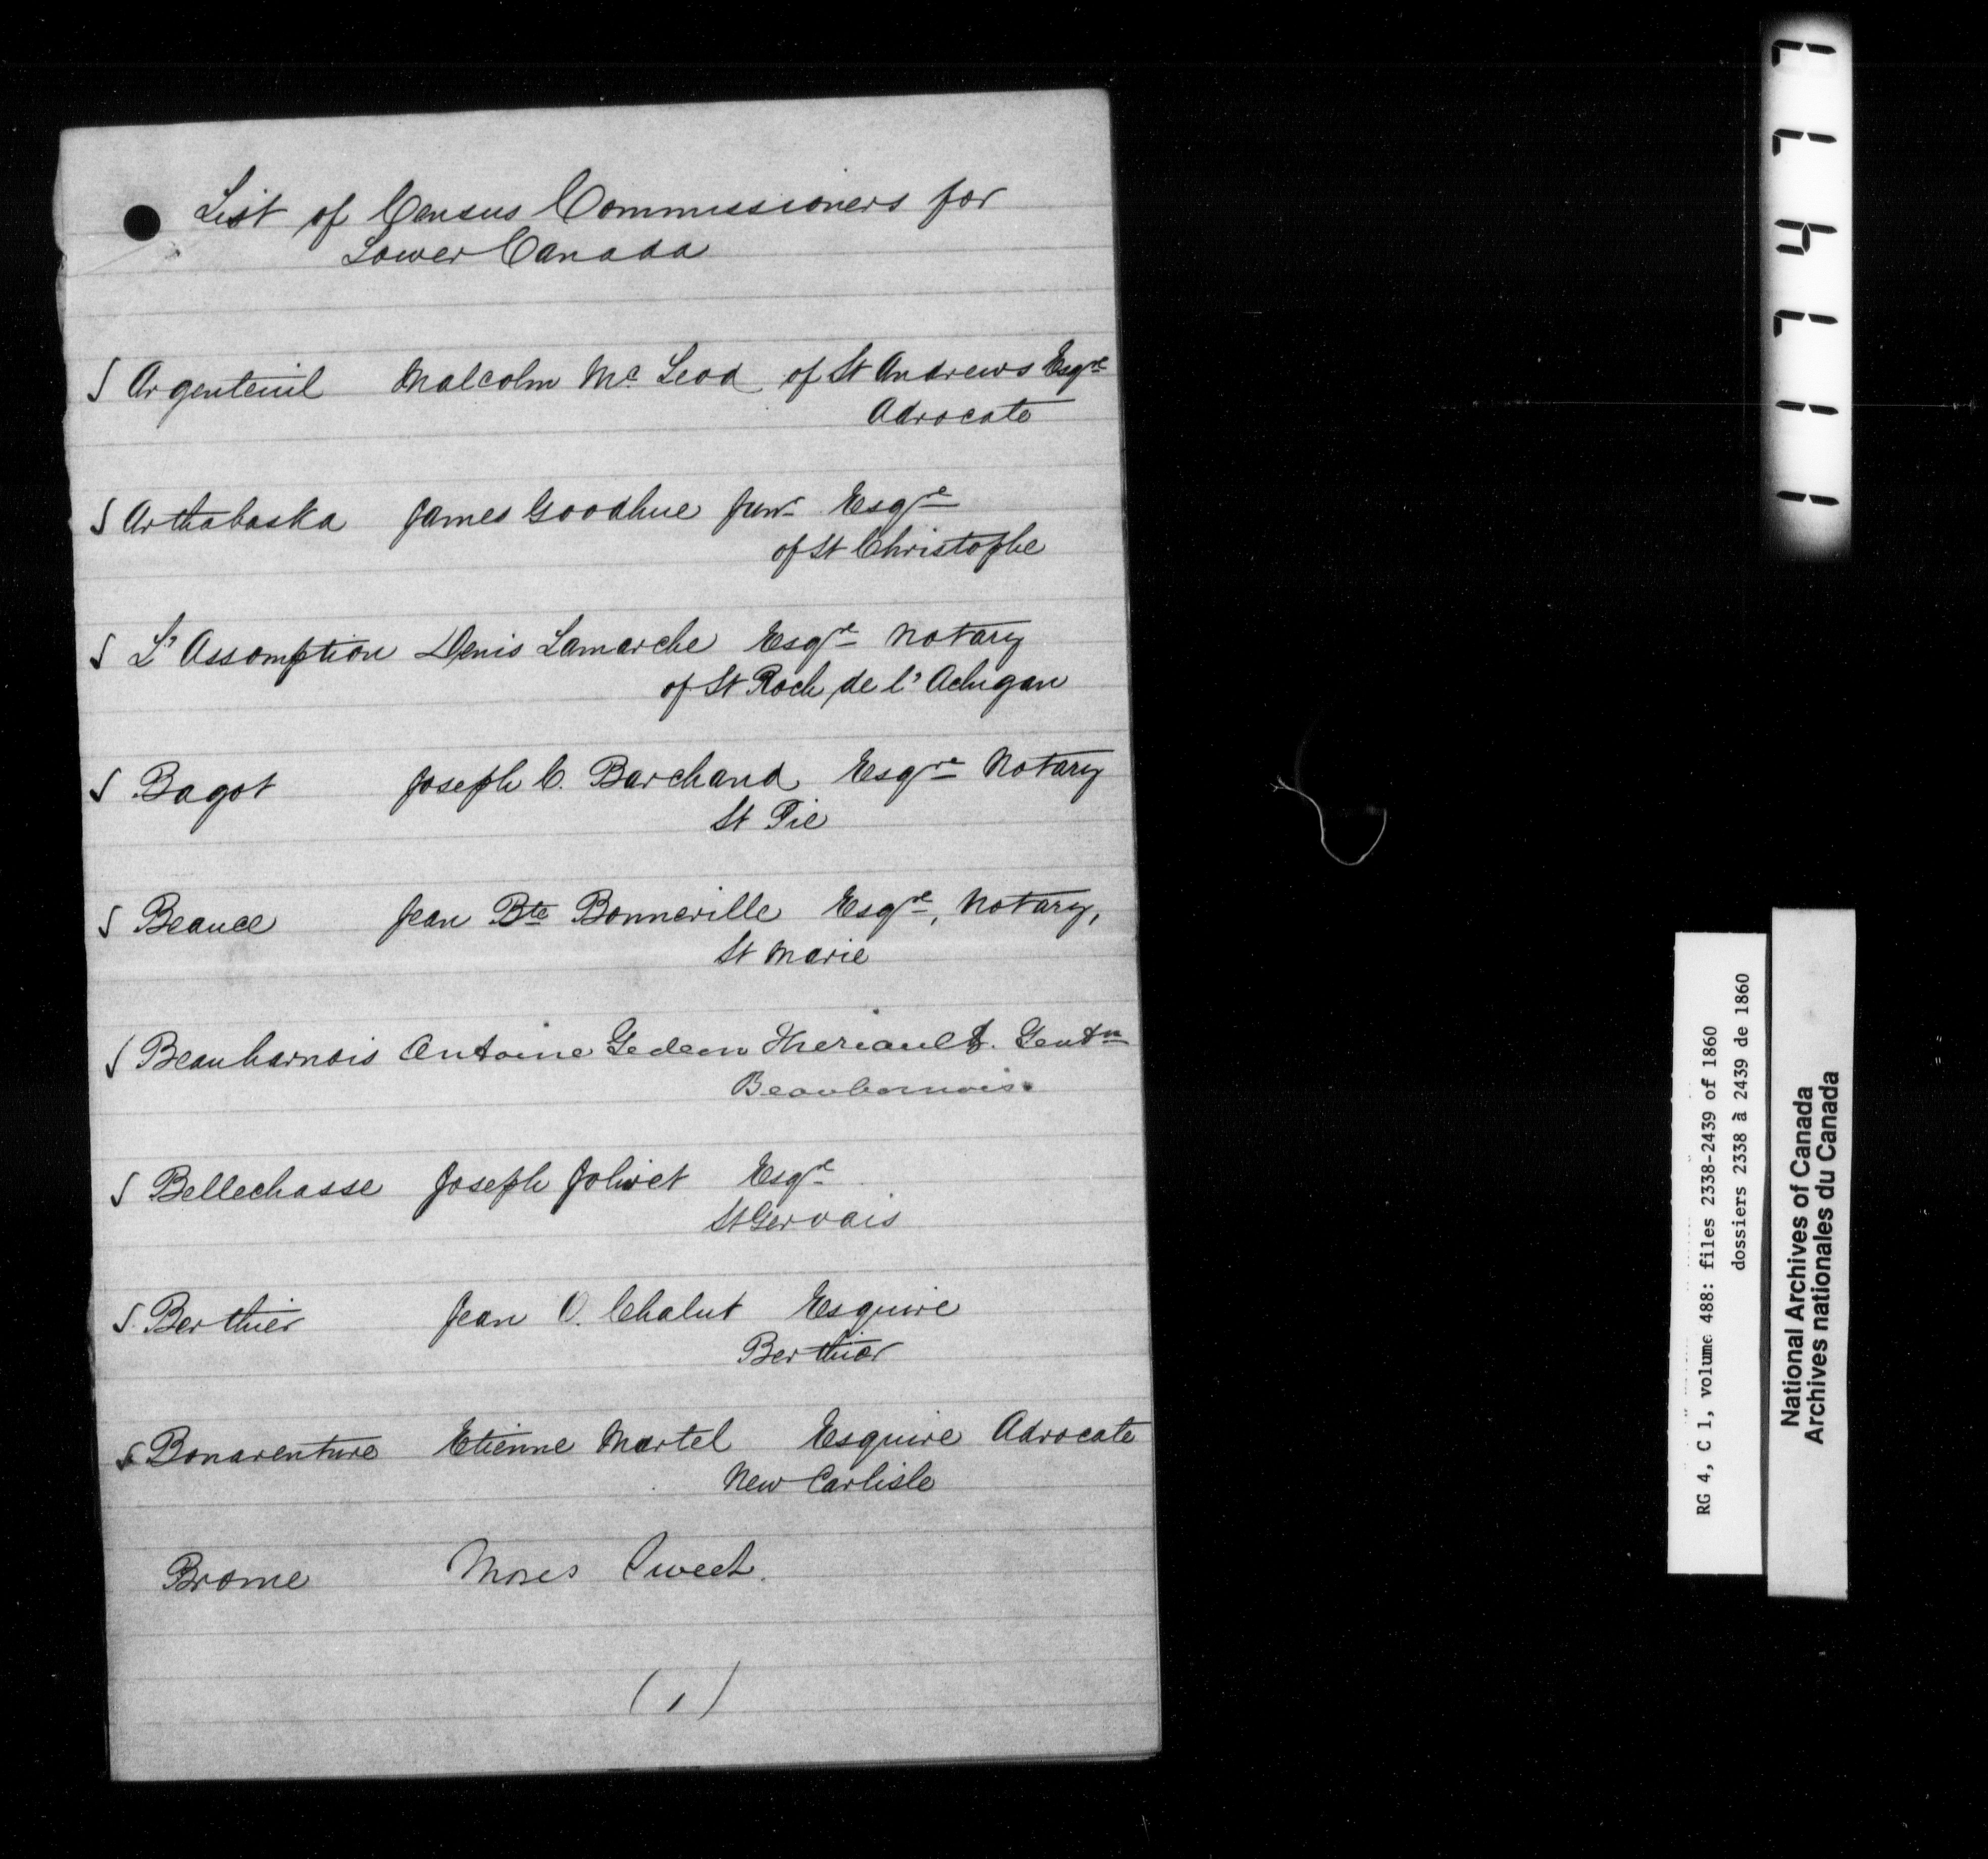 List of Census Commissioners for
Lower Canada
Argenteuil Malcolm Mc Leod of St Andrews Esqre
Advocate
Arthabaska James Goodhue Junr Esqre
of St Christophe
L'Assomption Denis Lamarche Esqre Notary
of St Roch de l'Achigan
Bagot Joseph C. Barchand Esqre Notary
St Pie
Beauce Jean Bte Bonneville Esqre, Notary,
St Marie
Beauharnois Antoine Gedeon Theriault. Gentn
Beauharnois.
Bellechasse Joseph Jolivet Esqre
St Gervais
Berthier Jean O. Chalut Esquire
Berthier
Bonaventure Etienne Martel Esquire Advocate
New Carlisle
Brome Moses Sweet.
(1)
117477
RG 4, C 1, volume 488: files 2338-2439 of 1860
dossiers 2338 à 2439 de 1860
National Archives of Canada
Archives nationales du Canada